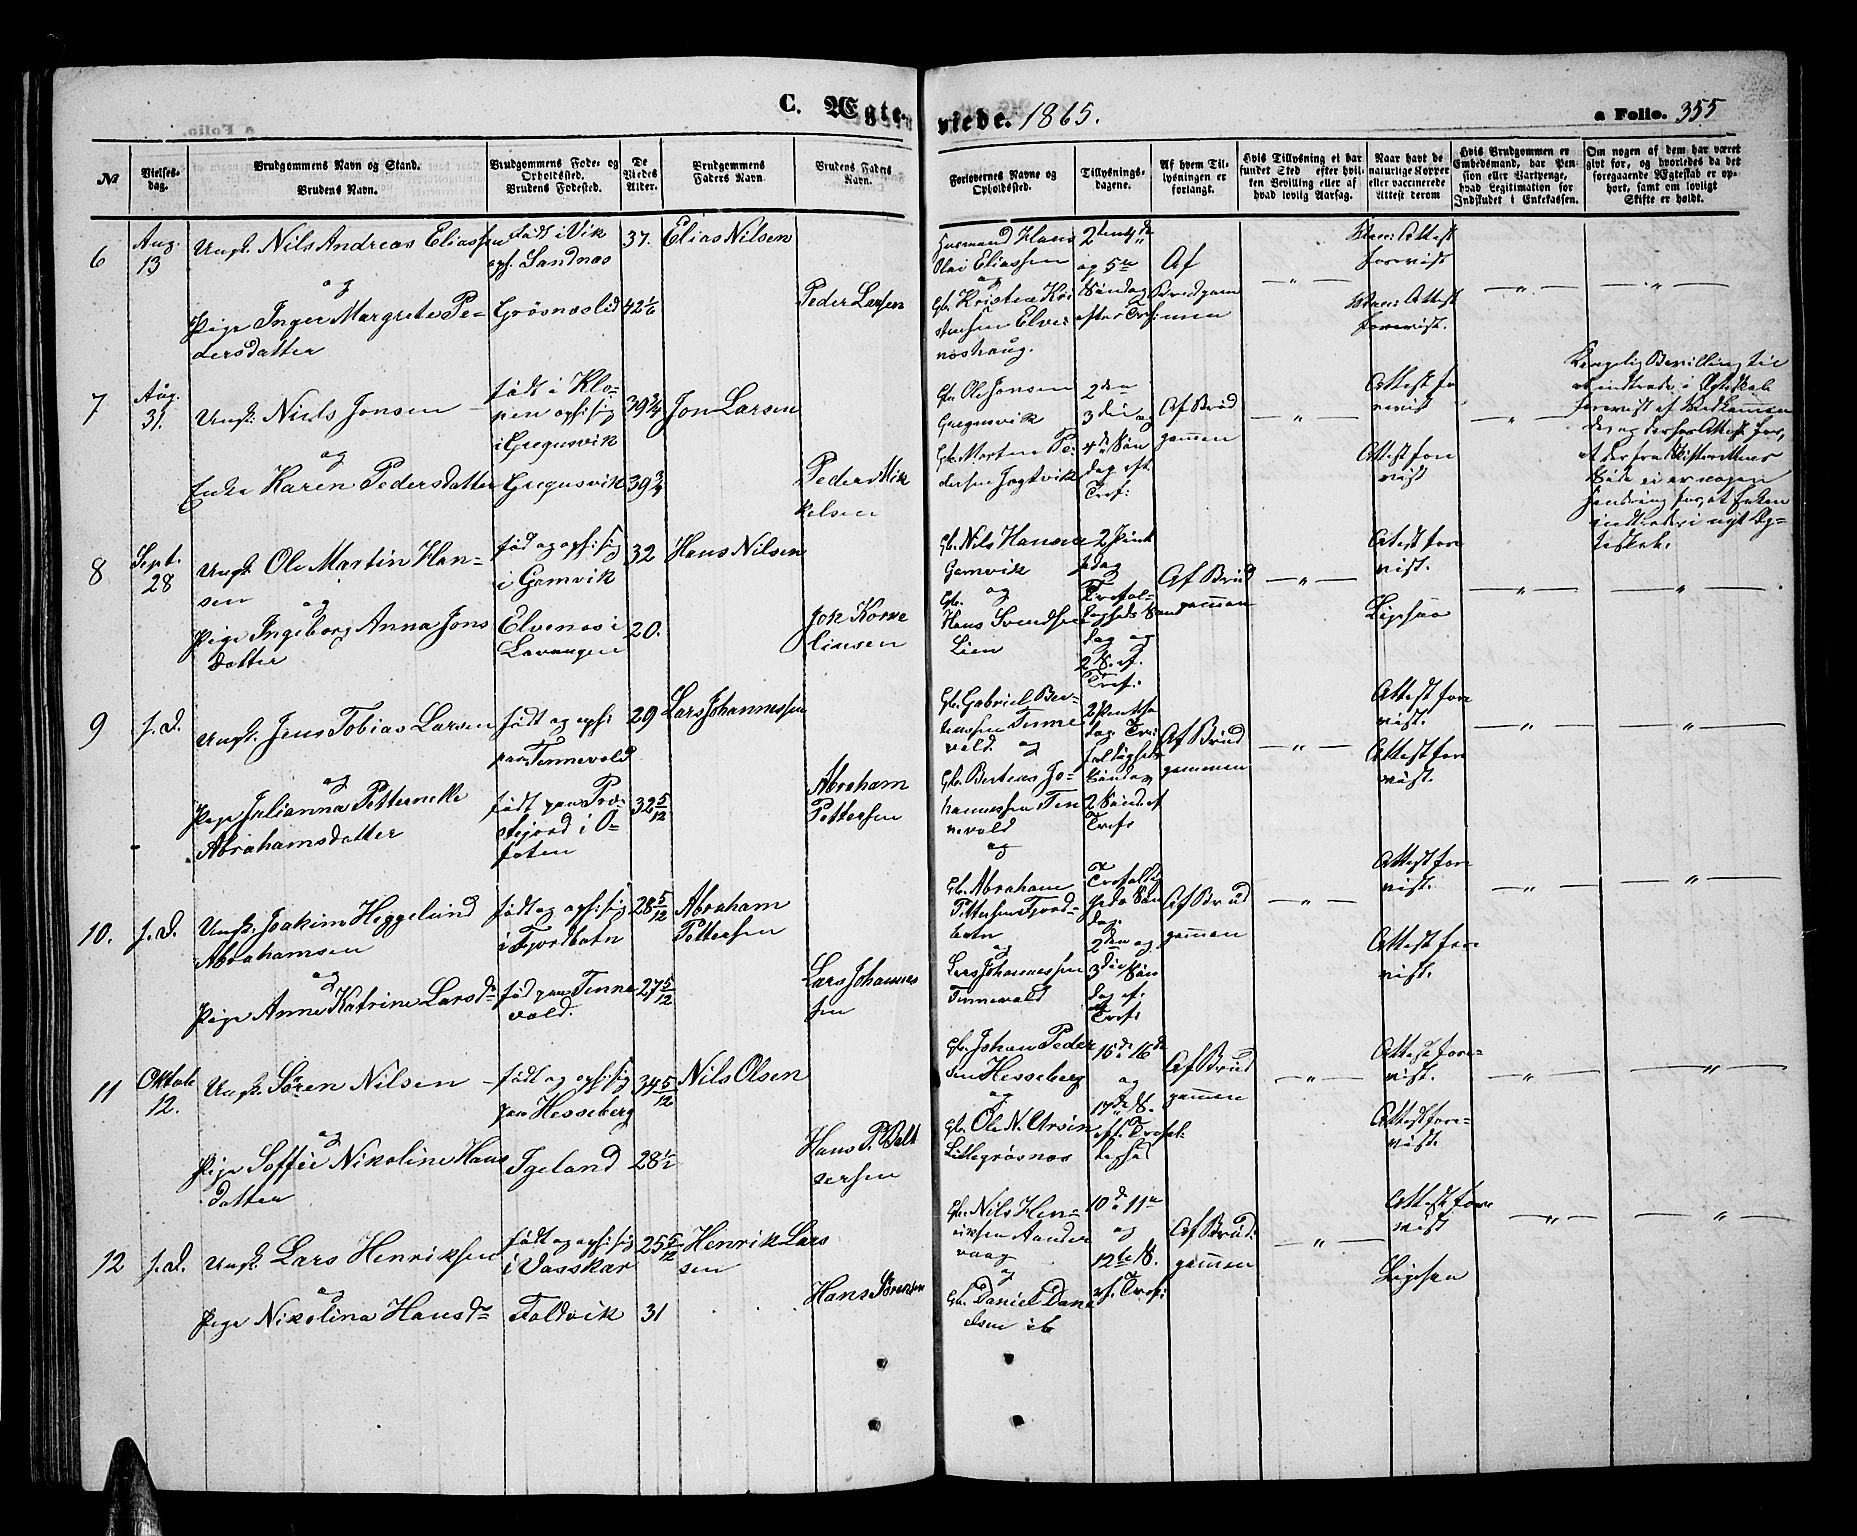 C. Ægte-
viede. 1865.
a Folio. 355
№
Vielses-
dag.
Brudgommens Navn og Stand.
Brudens Navn.
Brudgommens Føde- og
Opholdssted.
Brudens Fødested.
De
Viedes
Alder.
Brudgommens
Faders Navn.
Brudens Faders
Navn.
Forlovernes Navne og
Opholdssted.
Tillysnings-
dagene.
Af hvem Til-
lysningen er
forlangt.
Hvis Tillysning ei har
fundet Sted efter hvil-
ken Bevilling eller af
hvad lovlig Aarsag.
Naar havt de
naturlige Kopper
eller vaccinerede
Attest derom
Hvis Brudgommen er
Embedsmand, har Pen-
sion eller Vartpenge,
hvad Legitimation for
Indskudet i Enkekassen.
Om nogen af dem har været
gift før, og hvorledes da det
foregaaende Ægteskab er op-
hørt, samt om lovligt
Skifte er holdt.
6
Aug.
13
Ungk. Nils Andreas Eliassen
og
Pige Inger Margrete Pe-
dersdatter
født i Vik
oph. Sandnæs
Grøsnæslid
37.
42 1/6
Elias Nilsen
Peder Larsen
Husmand Hans
Olai Eliassen
og
Gb. Kristen Kri
stensen Elve
næshaug.
og 5te
Søndag
efter Tref:
Af
Brudgom
men
Vacc: Attest
forevist
Vacc: Attest
forevist.
7
Aug.
31.
Ungk. Niels Jonsen
og
Enke Karen Pedersdatter
født i Klo-
ven oph: sig
i Gregusvik
Gregusvik
39 3/4
39 3/4
Jon Larsen
Peder Mik
kelsen
Gb. Ole Jonsen
Gregusvik
Gb. Morten Pe-
dersen Jagtvik
2den
3die og
4de Søn
dag eft.
Tref:
Af Brud
gommen
Attest fo
revist
Attest fore
vist
Kongelig Bevilling til
at indtræde i Ægteskab
forevist af Vedkommen
de, og derhos Attest for,
at der fra Skifterettens
Side ei er nogen
Hindring for, at Enken
indtræder i nyt Æg-
teskab.
8
Sept.
28
Ungk. Ole Martin Han-
sen
og
Pige Ingeborg Anna Jons
datter
fød og oph: sig
i Gamvik
Elvenæs i
Lavangen
32
20.
Hans Nilsen
Gb. Nils Hansen
Gamvik
og
Gb.
Hans Svendsen
Lien
2 Pint
sedag
Trefol-
digheds Søn
dag og
2 S. ef.
Tref:
Af Brud
gommen
Attest fore
vist.
Ligesaa
9
s. d.
Ungk. Jens Tobias Larsen
og
Pige Julianna Petternelle
Abrahamsdatter
født og oph:
paa Tennevold
født paa Præ-
stejord i O-
foten
29
32 5/12
Lars Johannessen
Abraham
Pettersen
Gb. Gabriel Ber-
teussen Tenne
vold
og
Gb. Berteus Jo-
hannessen Ten
nevold
2 Pintse
dag. Tre
foldigheds
Søndag
2 Sønd. ef
Tref:
Af Brud
gommen
Attest fore
vist.
Attest fore
vist.
10.
s. d.
Ungk. Joakim Heggelund
Abrahamsen
og
Pige Anne Katrine Larsdr
født og oph: sig
i Fjordbotn
fød paa Tenne
vold.
28 5/12
27 5/12
Abraham
Pettersen
Lars Johannes
sen
og
Gb. Abraham
Pettersen Fjord-
botn
og
Lars Johannessen
Tennevold
Trefoldig
heds Søn
dag.
2den og
3die Søn
dag ef.
Tref:
Af Brud
gommen
Attest fore
vist.
Attest fore
vist.
11
Oktob
12.
Ungk. Søren Nilsen
og
Pige Soffie Nikoline Hans
datter
født og oph: sig
paa Hesseberg
Igeland
34 5/12
28 1/2
Nils Olsen
Hans P. Balt
sersen
Gb. Johan Peder
sen Hesseberg
og
Gb. Ole N. Arvin
Lillegrøsnæs
15de 16de
og
17de S.
eft. Trefol-
dighed
Af Brud
gommen
Attest fore-
vist.
Attest fore-
vist.
12
s. d.
Ungk. Lars Henriksen
og
Pige Nikolina Hansdr
født og oph: sig
i Vasskar
Foldvik
25 5/12
31
Henrik Lars
sen
Hans Sørensen
Gb. Nils Hen-
riksen Aander
vaag
og
Gb. Daniel Dani
elsen ib
10de 11te
og
12te S.
ef. Tref:
Af Brud-
gommen
Attest fore
vist
Ligesaa